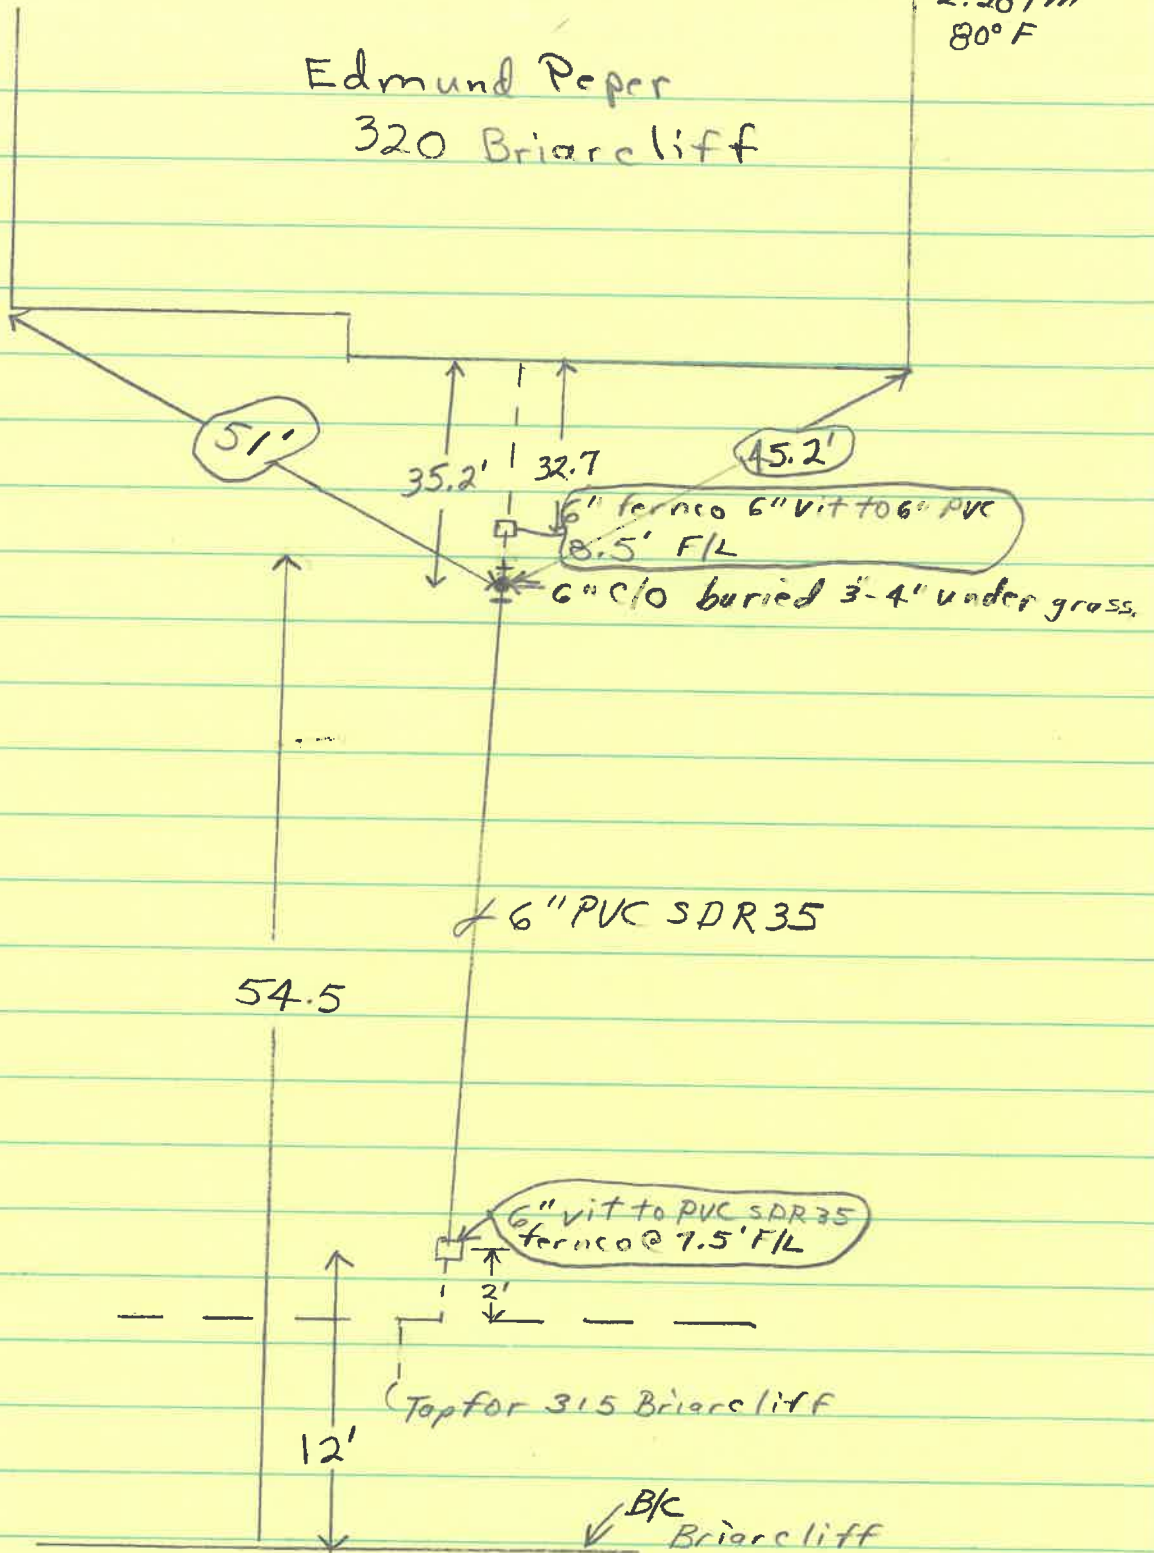 80° F
Edmund Peper
320 Briarcliff
51'
35.2'
32.7
45.2'
6" fernco 6" vit to 6" PVC
8.5' F/L
6" C/O buried 3"-4" under grass.
6" PVC SDR35
54.5
6" vit to PVC SDR35
fernco @ 7.5' F/L
2'
Tap for 315 Briarcliff
12'
B/C
Briarcliff